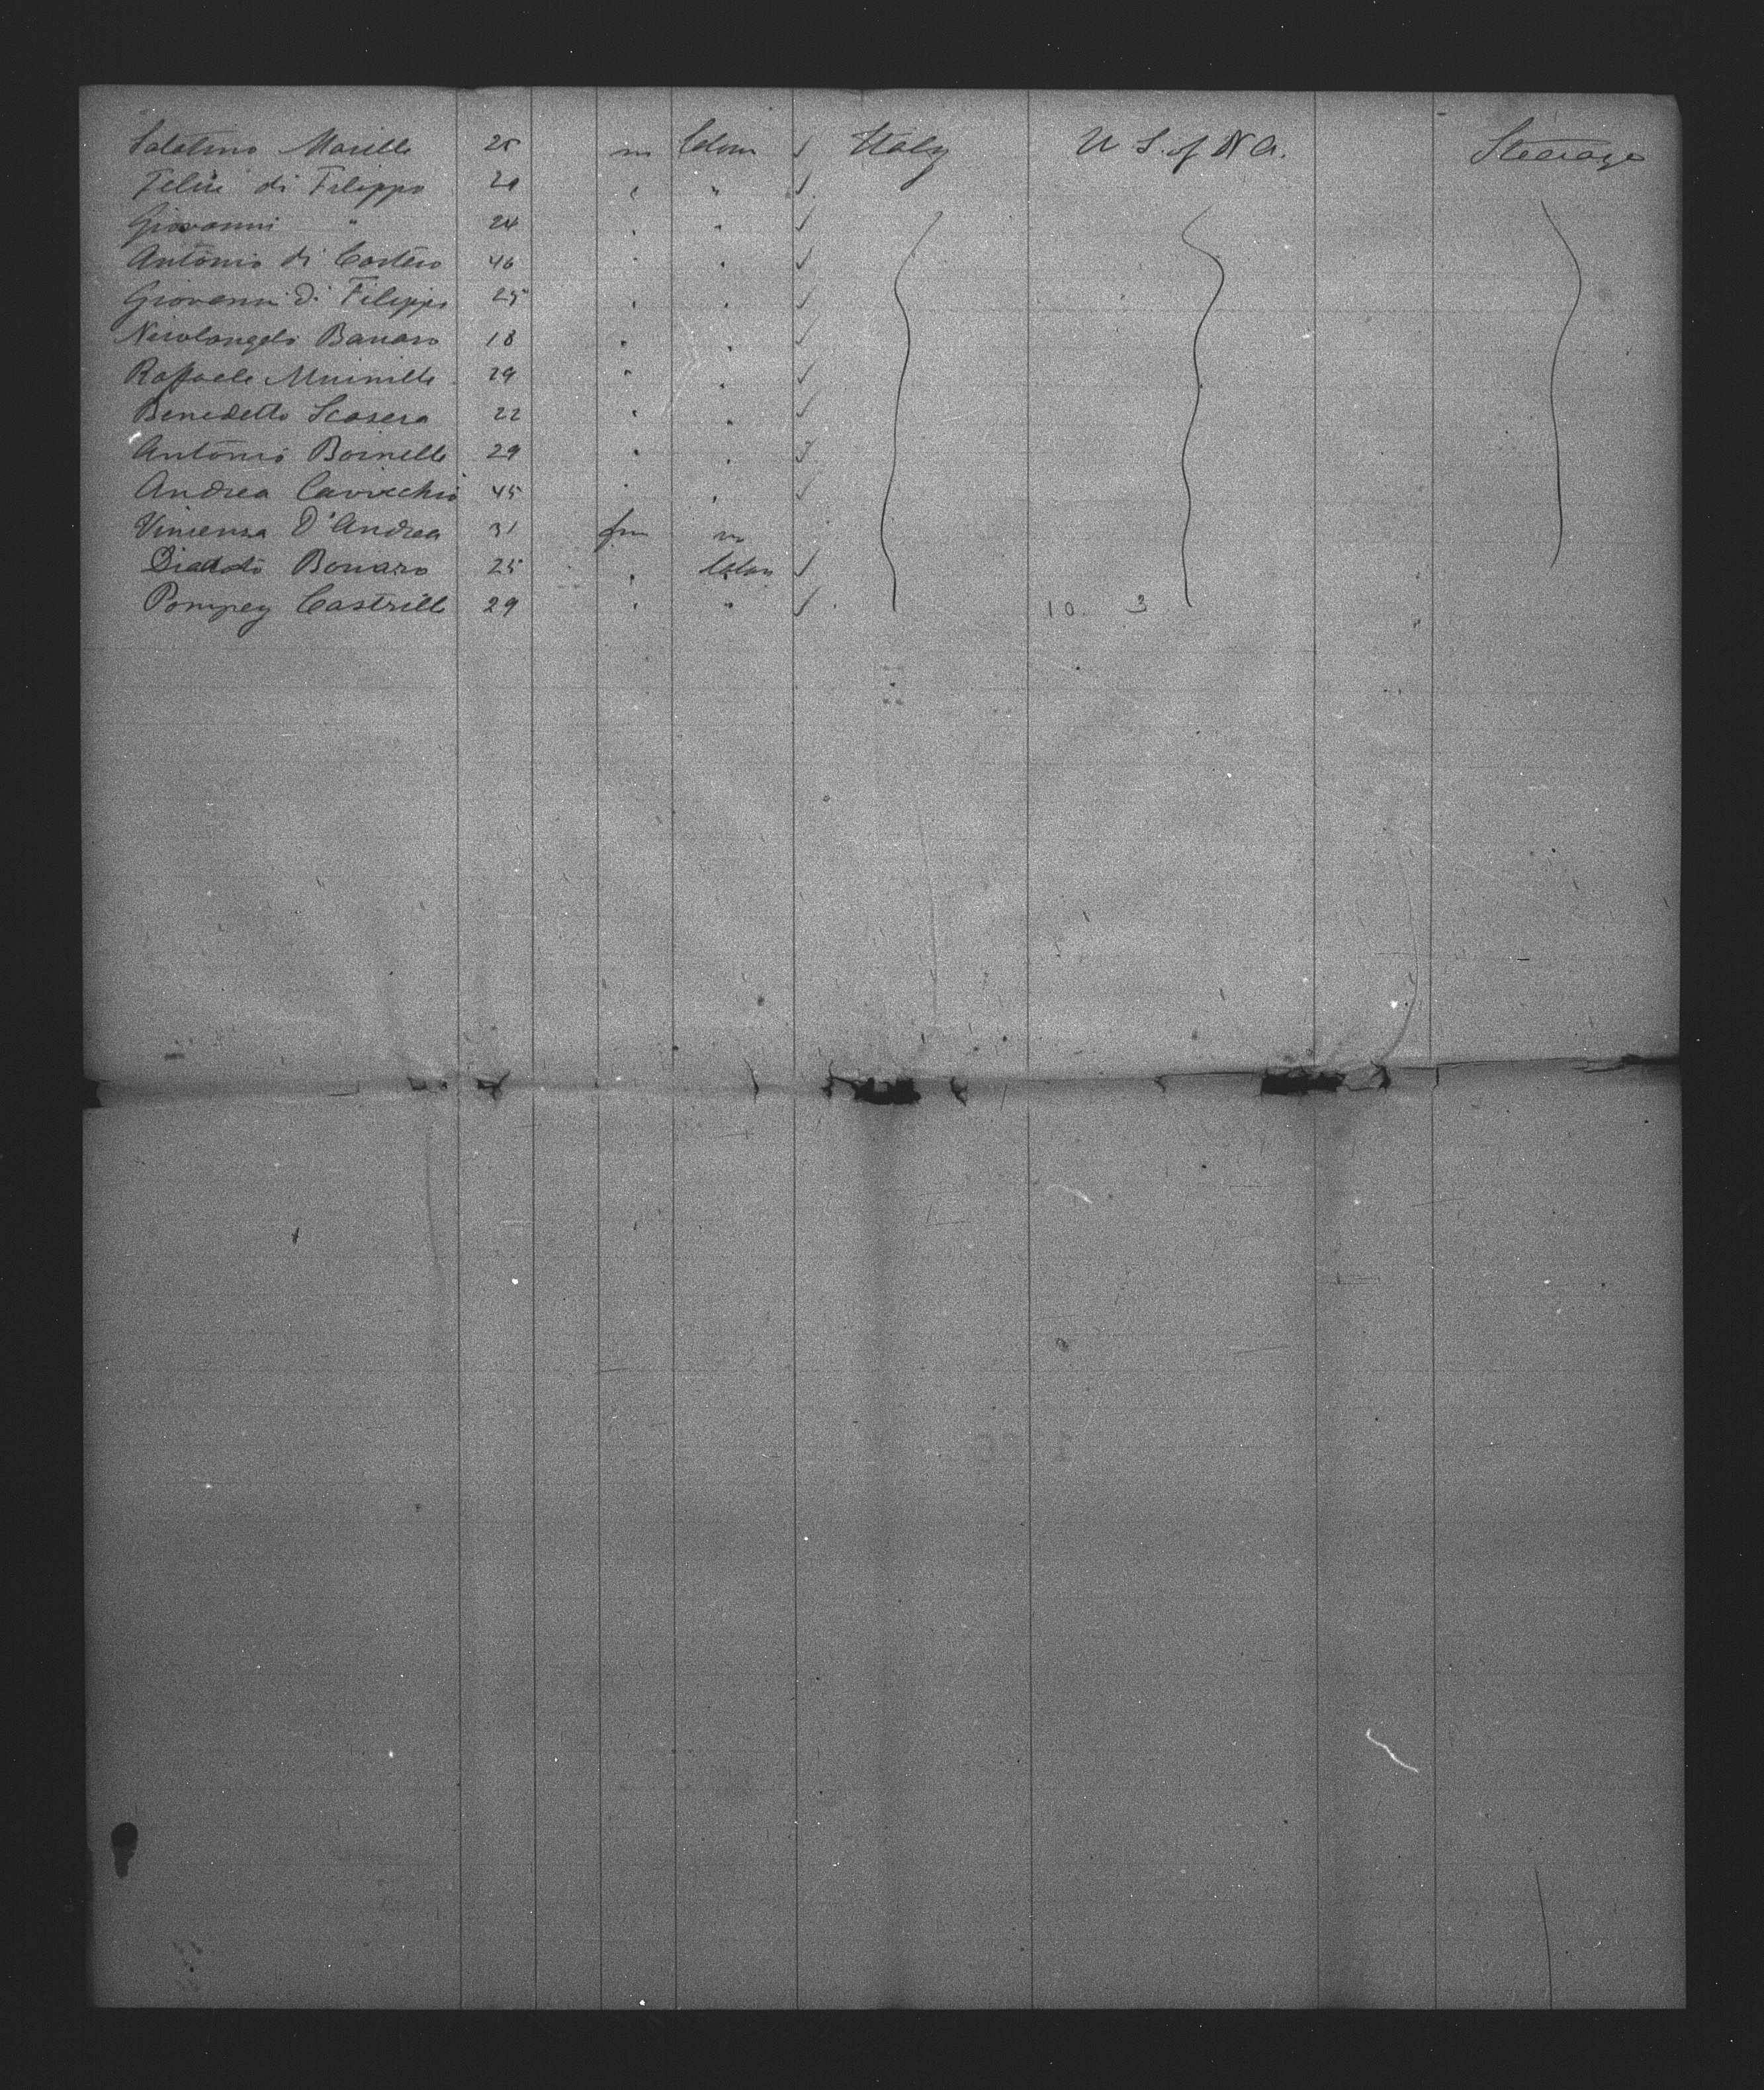 Salatino Masille 25 m Labour ✓ Italy U S. of N A. Steerage
Felice di Filippo 29 " " ✓
Giovanni " 24 " " ✓
Antonio di Costero 46 " " ✓
Giovanni Di Filippo 25 " " ✓
Nicolangelo Banaro 18 " " ✓
Raffaele Muinille 29 " " ✓
Benedetto Scasera 22 " " ✓
Antonio Boinelle 29 " " ✓
Andrea Cavicchio 45 " " ✓
Vincenza D'Andrea 31 fm
Bonaro 25 " ✓
Pompey Castrill 29 " " ✓ 10. 3